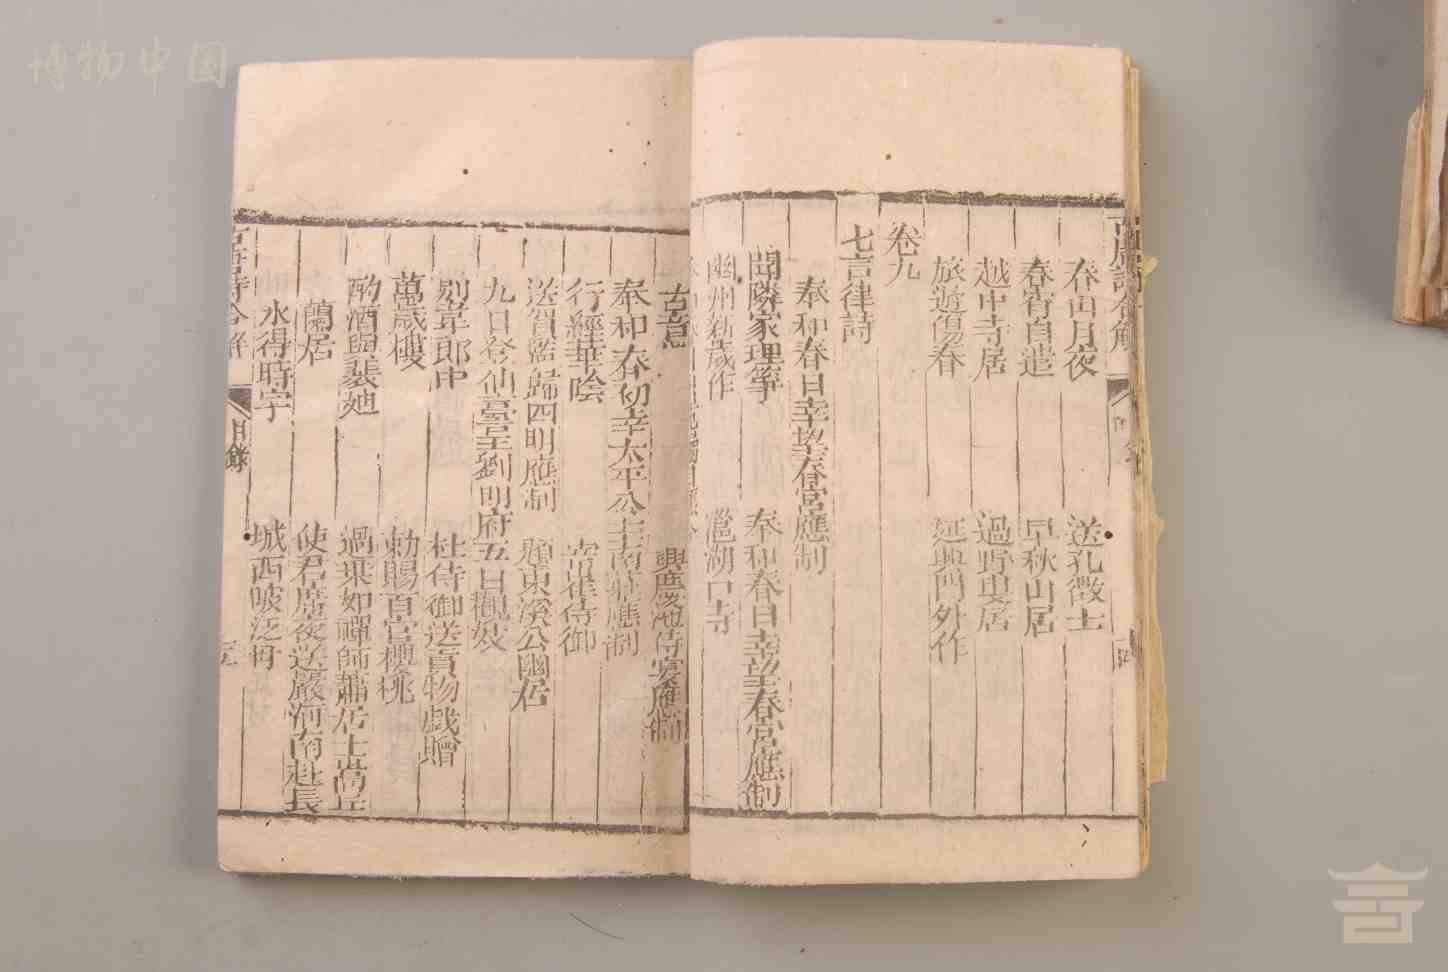 博物中国
春山月夜 送孔徵士
春宵自遣 早秋山居
越中寺居 過野叟居
旅遊傷春 延興門外作
卷九
七言律詩
奉和春日幸望春宮應制
聞隣家理箏 奉和春日幸望春宮應制
幽州新歲作 㴩湖口寺
古意 興慶池侍宴應制
奉和春初幸太平公主南莊應制
行經華陰 寄崔侍御
送賀監歸四明應制 題東溪公幽居
九日登仙臺呈劉明府 五日觀妓
別韋郎中 杜侍御送貢物戲贈
萬歲樓 勅賜百官櫻桃
酌酒與裴廸 過乗如禪師蕭居士嵩丘
蘭居 使君席夜送嚴河南赴長
水得時字 城西陂泛舟
古唐詩合解 目錄